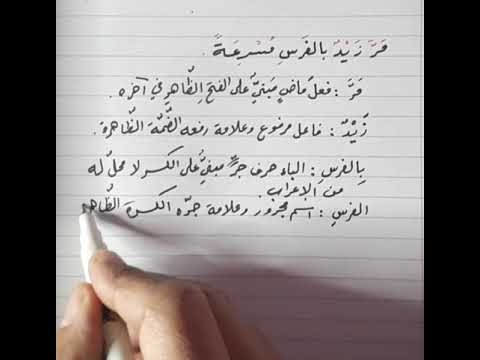 فَرَّ زَيْدٌ بالفَرَسِ مُسْرِعَةً.
فَرَّ : فعل ماضٍ مَبنيٌّ على الفتحِ الظّاهرِ في آخره.
زَيْدٌ : فاعل مرفوع وعلامة رفعه الضّمّة الظّاهرة.
بِالفَرَسِ : الباء حرف جرٍّ مبنيٌّ على الكسر لا محلّ له
من الإعراب.
الفرسِ : اسم مجرور وعلامة جرّه الكسرة الظّاهر